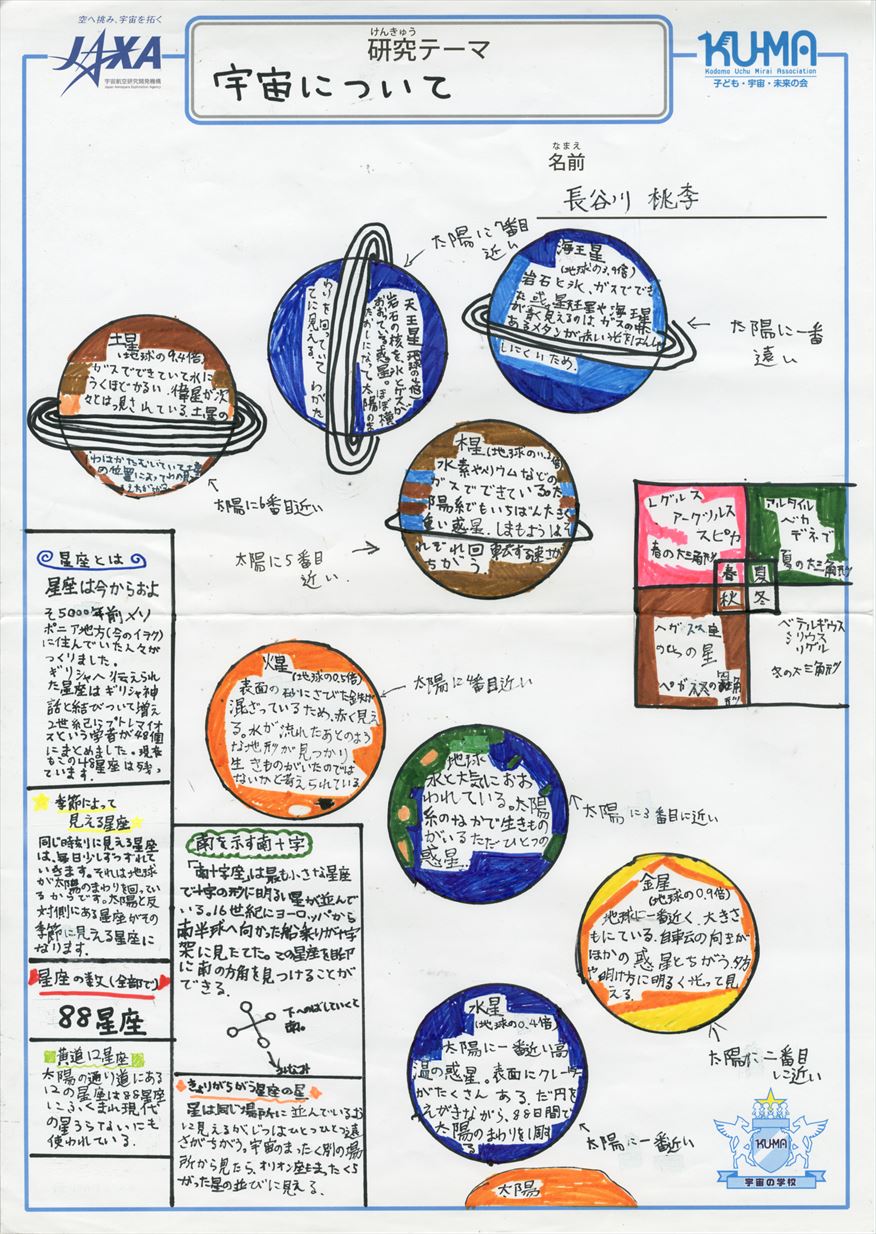 空へ挑み、宇宙を拓く
JAXA
宇宙航空研究開発機構
Japan Aerospace Exploration Agency
けんきゅう
研究テーマ
宇宙について
KU-MA
Kodomo Uchu Mirai Association
子ども・宇宙・未来の会
なまえ
名前
長谷川 桃李
太陽に7番目
近い
海王星
(地球の3.9倍)
岩石と氷、ガスででき
た惑星。天王星や海王星
が青く見えるのは、ガスの中に
あるメタンが赤い光をはんしゃ
しにくいため。
太陽に一番
遠い
天王星(地球の4倍)
岩石の核を、氷とガスが
おおっている惑星。ほぼ横
だおしになって太陽のま
わりを回っていて わがた
てに見える。
土星
(地球の9.4倍)
ガスでできていて水に
うくほどかるい。衛星が次
々とはっ見されている。土星の
わはかたむいていて土星
の位置によってわの見
え方がかわる。
太陽に6番目近い
木星(地球の11.2倍)
水素やヘリウムなどの
ガスでできている。太
陽系でもいちばん大きく
重い惑星。しまもようはそ
れぞれ回転する速さが
ちがう
太陽に5番目
近い.
レグルス
アークツルス
スピカ
春の大三角形
アルタイル
ベガ
デネブ
夏の大三角形
春 夏
秋 冬
ペガスス座
の4つの星
ベテルギウス
シリウス
リゲル
冬の大三角形
星座とは
星座は今からおよ
そ5000年前メソ
ポニア地方(今のイラク)
に住んでいた人々が
つくりました。
ギリシャへ伝えられ
た星座はギリシャ神
話と結びついて増え
2世紀にプトレマイオ
スという学者が48個
にまとめました。現在
もこの48星座は残っ
ています。
火星
(地球の0.5倍)
表面の砂にさびた鉄が
混ざっているため、赤く見え
る。水が流れたあとのよう
な地形が見つかり
生きものがいたのでは
ないかと考えられている
太陽に4番目近い
地球
水と大気におお
われている。太陽
系のなかで生きもの
がいるただひとつの
惑星.
太陽に3番目に近い
季節によって
見える星座
同じ時刻に見える星座
は、毎日少しずつずれて
いきます。それは地球
が太陽のまわりを回ってい
るからです。太陽と反
対側にある星座がその
季節に見える星座に
なります。
星座の数(全部で)
88星座
黄道12星座
太陽の通り道にある
12の星座は88星座
にふくまれ現代
の星うらないにも
使われている.
南を示す南十字
「南十字座」は最も小さな星座
で十字の形に明るい星が並んで
いる。16世紀にヨーロッパから
南半球へ向かった船乗りが十字
架に見たてた。この星座を目印
に南の方角を見つけることが
できる。
下へのばしていくと
南。
きょりがちがう星座の星
星は同じ場所に並んでいるよう
に見えるが、じつはひとつひとつ遠
さがちがう。宇宙のまったく別の場
所から見たら、オリオン座もまったくち
がった星の並びに見える.
金星
(地球の0.9倍)
地球に一番近く、大きさ
もにている.自転の向きが
ほかの惑星とちがう.夕方
や明け方に明るく光って見
える.
太陽に二番目
に近い
水星
(地球の0.4倍)
太陽に一番近い高
温の惑星。表面にクレーター
がたくさんある。だ円を
えがきながら、88日間で
太陽のまわりを1周する
太陽に一番近い
太陽
KU-MA
宇宙の学校